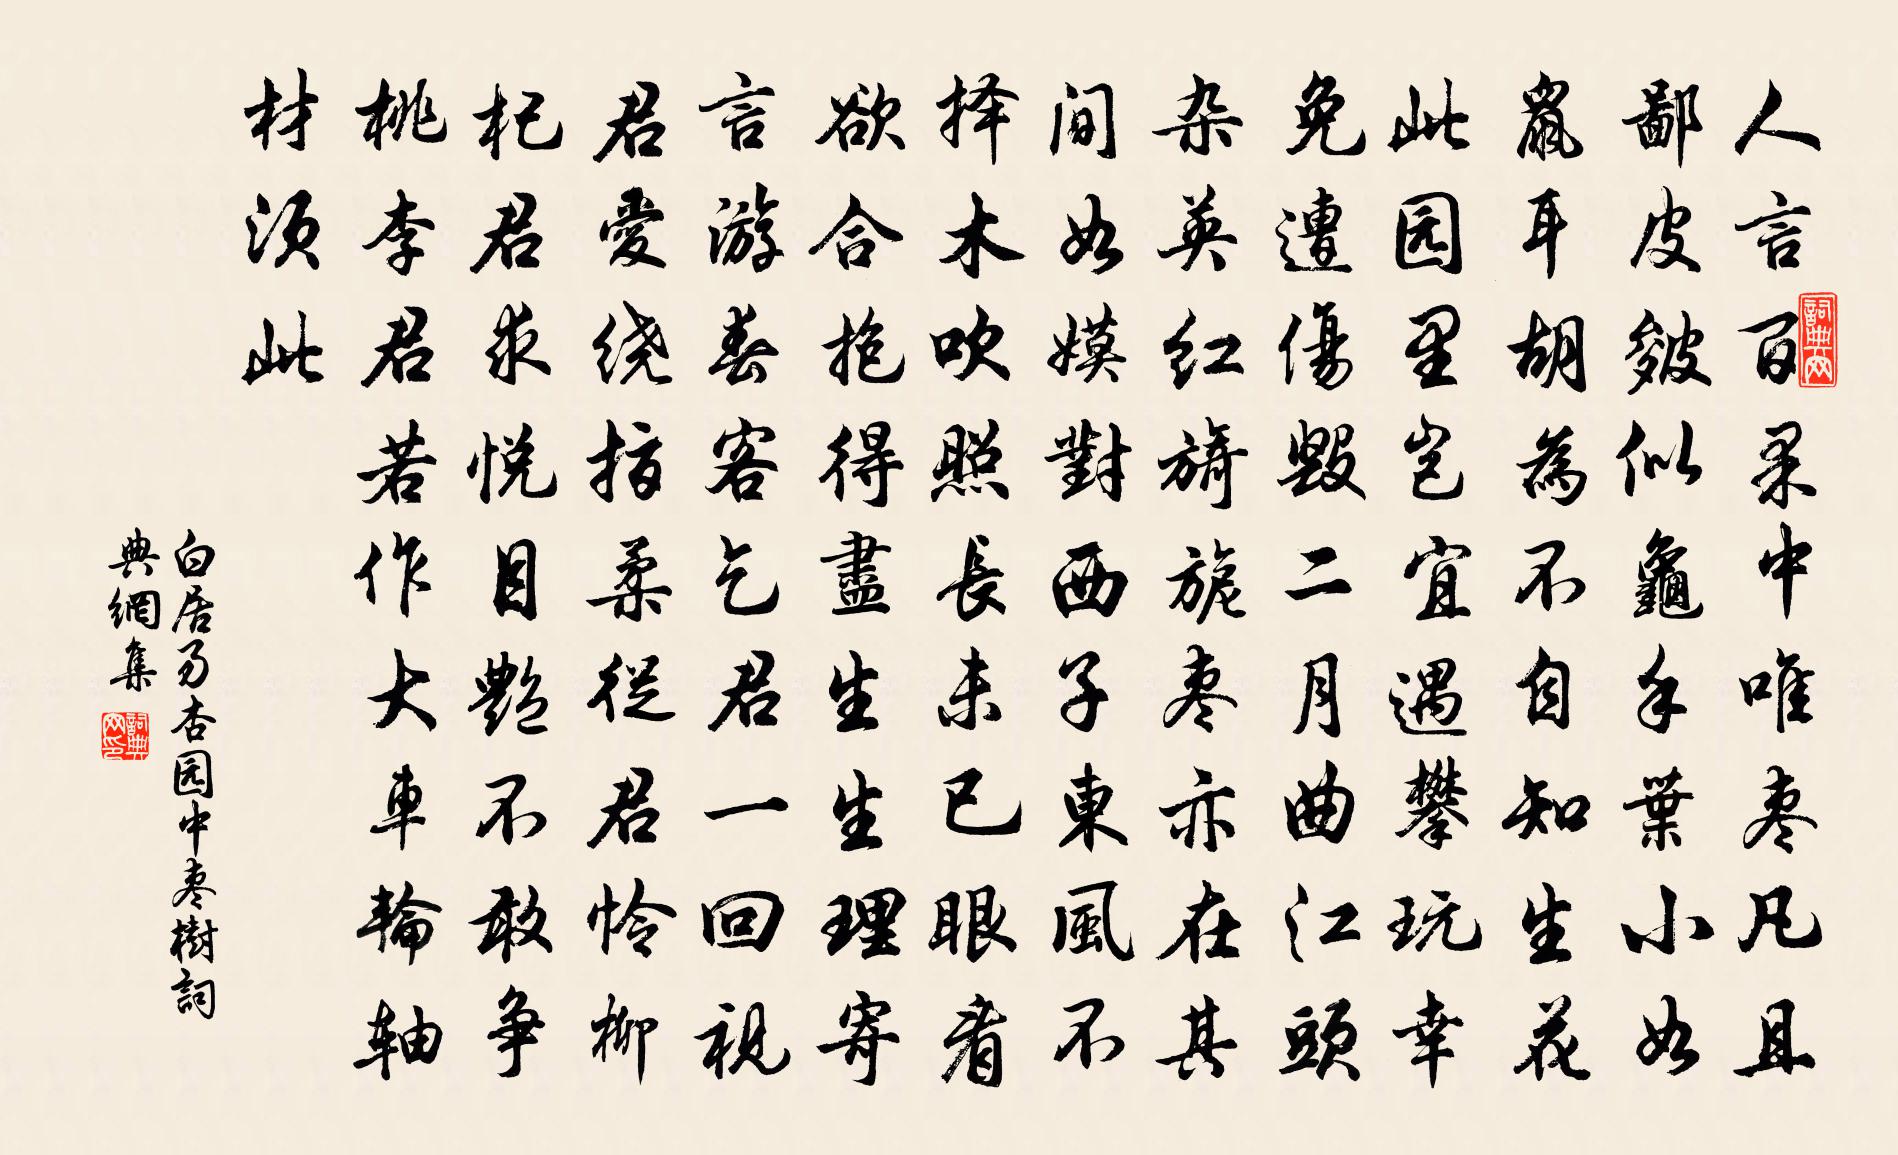 人言百果中唯枣凡且
鄙皮皴似龜手葉小如
鼠耳胡為不自知生花
此园里岂宜遇攀玩幸
免遭傷毀二月曲江頭
杂英红旖旎枣亦在其
间如嫫對西子東風不
择木吹照長未已眼看
欲合抱得盡生生理寄
言游春客乞君一回視
君愛绕指柔從君怜柳
杞君求悦目艷不敢争
桃李君若作大車輪轴
材须此
白居易杏园中枣樹詞
典網集
詞典网
詞典网印